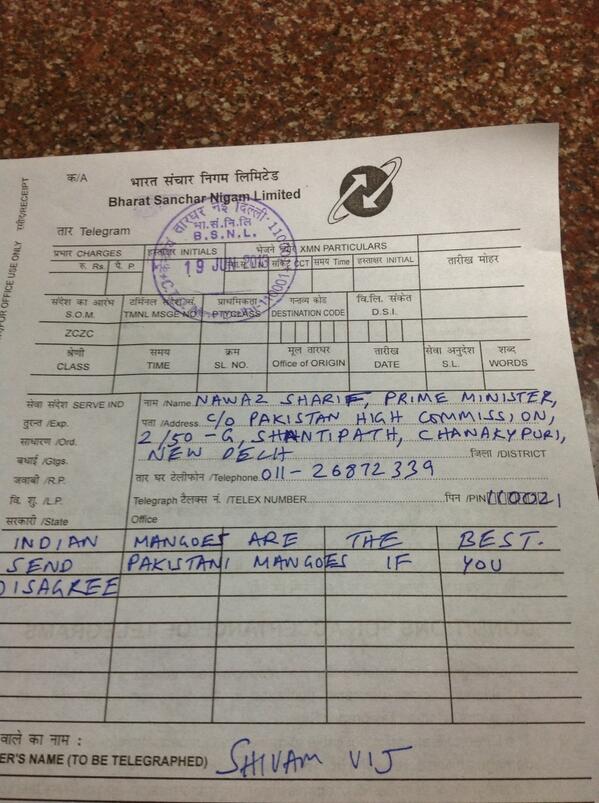 क/A
भारत संचार निगम लिमिटेड
Bharat Sanchar Nigam Limited
तार Telegram
भा.सं.नि.लि
B.S.N.L.
प्रभार CHARGES हस्ताक्षर INITIALS XMN PARTICULARS तारीख मोहर
रु. Rs. पै. P. 19 JUN 2013 CCT समय Time हस्ताक्षर INITIAL
संदेश का आरंभ टर्मिनल संदेश सं. प्राथमिकता गन्तव्य कोड वि.लि. संकेत
S.O.M. TMNL MSGE NO PTY/CLASS DESTINATION CODE D.S.I.
ZCZC
श्रेणी समय क्रम मूल तारघर तारीख सेवा अनुदेश शब्द
CLASS TIME SL NO. Office of ORIGIN DATE S.L. WORDS
सेवा संदेश SERVE IND नाम /Name NAWAZ SHARIF, PRIME MINISTER,
तुरन्त /Exp. पता /Address C/O PAKISTAN HIGH COMMISSION,
साधारण /Ord. 2/50-G, SHANTIPATH, CHANAKYPURI,
बधाई /Gtgs. NEW DELH जिला /DISTRICT
जवाबी /R.P. तार घर टेलीफोन /Telephone 011-26872339
वि. शु. /L.P. Telegraph टैलक्स नं. /TELEX NUMBER पिन /PIN
सरकारी /State Office
INDIAN MANGOES ARE THE BEST.
SEND PAKISTANI MANGOES IF YOU
DISAGREE
वाले का नाम :
ER'S NAME (TO BE TELEGRAPHED) SHIVAM VIJ
OFFICE USE ONLY रसीद/RECEIPT